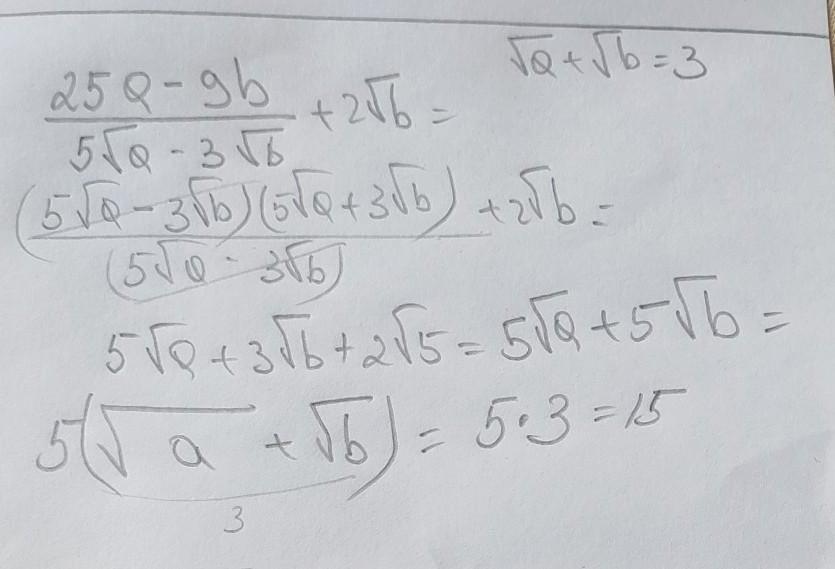 √a + √b = 3
(25a - 9b)/(5√a - 3√b) + 2√b =
((5√a - 3√b)(5√a + 3√b))/((5√a - 3√b)) + 2√b =
5√a + 3√b + 2√5 = 5√a + 5√b =
5(√a + √b) = 5·3 = 15
3